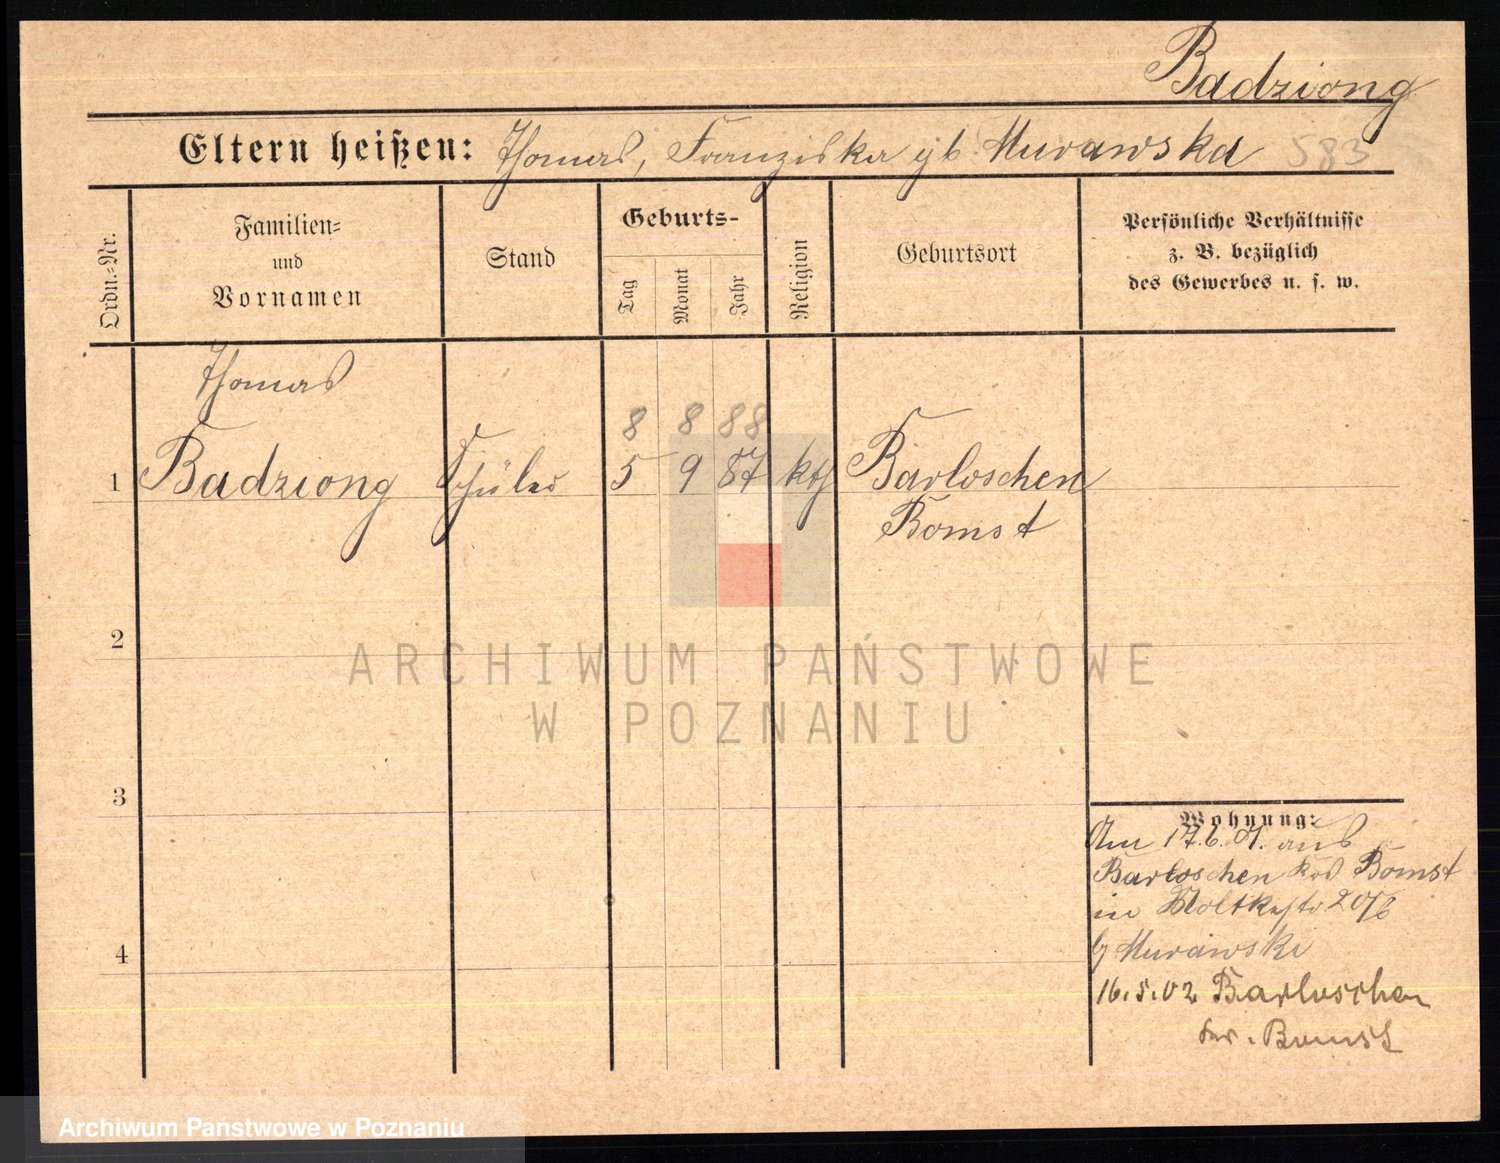 Badziong
Eltern heißen: Thomas, Franziska gb. Murawska 583
Ordn.-Nr.
Familien-
und
Vornamen
Stand
Geburts-
Tag
Monat
Jahr
Religion
Geburtsort
Persönliche Verhältnisse
z. B. bezüglich
des Gewerbes u. s. w.
Thomas
8 8 88
1 Badziong Schüler 5 9 87 kth Barloschen
Bomst
2
ARCHIWUM PAŃSTWOWE
W POZNANIU
3
Wohnung:
Am 17.6.01. aus
Barloschen Krs Bomst
in Moltkestr 20/6
b Murawski
4
16.5.02 Barloschen
Kr. Bomst
Archiwum Państwowe w Poznaniu